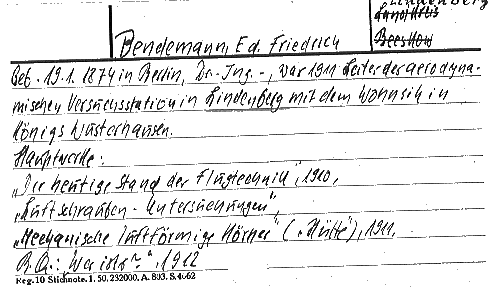 Lindenberg
Landkrs
Beeskow
Bendemann, Ed. Friedrich
Geb. 19.1.1874 in Berlin, Dr.-Ing.-, war 1911 Leiter der aerodyna-
mischen Versuchsstation in Lindenberg mit dem Wohnsitz in
Königs Wusterhausen.
Hauptwerke:
„Der heutige Stand der Flugtechnik", 1910,
„Luftschrauben-Untersuchungen",
„Mechanische luftförmige Körper" („Hütte"), 1911,
B.Q.: „Wer ist's?", 1912
Reg. 10 Stichnote. 1. 50. 232000. A. 803. S. 4662